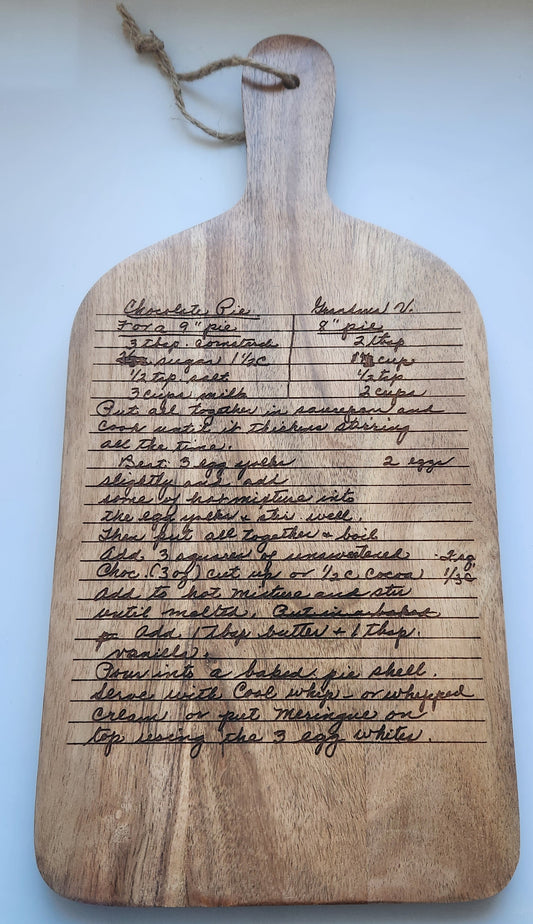 Chocolate Pie Grandma V.
For a 9" pie 8" pie
3 tbsp. cornstarch 2 tbsp
sugar 1 1/2 C 1 cup
1/2 tsp. salt 1/2 tsp
3 cups milk 2 cups
Put all together in saucepan and
Cook until it thickens stirring
all the time.
Beat 3 egg yolks 2 eggs
slightly and add
some of hot mixture into
the egg yolks & stir well.
Then put all together & boil
Add 3 squares of unsweetened - 2 sq
Choc. (3 oz) cut up or 1/2 C cocoa 1/3 C
Add to hot mixture and stir
until melted. But in a baked
Add 1 Tbsp butter + 1 tbsp.
vanilla.
Pour into a baked pie shell.
Serve with Cool whip - or whypped
cream or put meringue on
top using the 3 egg whites.